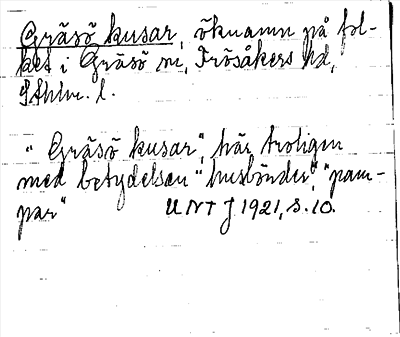 Gräsö kusar, öknamn på fol-
ket i Gräsö sn, Frösåkers hd,
Sthlm. l.
" Gräsö kusar", här troligen
med betydelsen "husbönder", "pam-
par" UNT J 1921, s. 10.